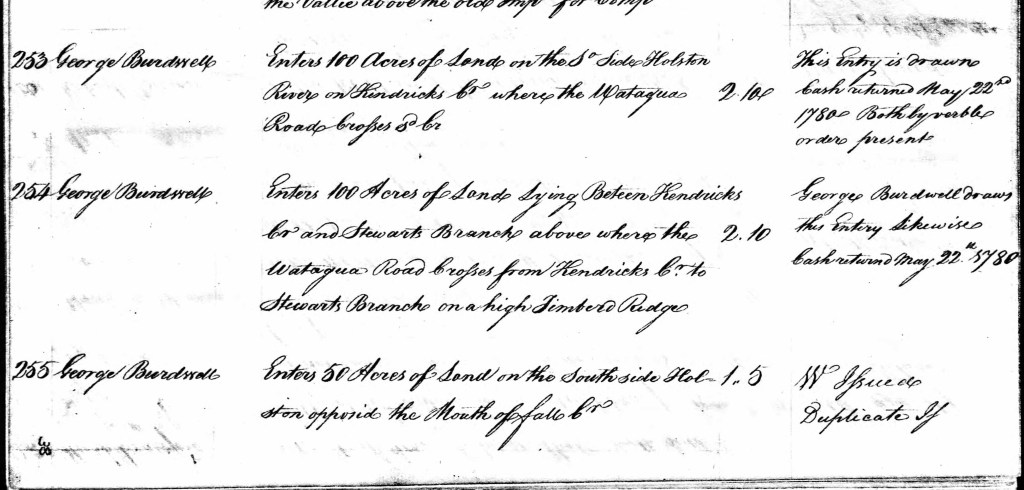 the Vallie above the old Imp for Comp
253 George Burdwell Enters 100 Acres of Land on the So Side Holston This Entry is drawn
River on Kindricks Cr where the Wataqua 2.10 Cash returned May 22nd
Road Crosses sd Cr 1780 Both by verble
order present
254 George Burdwell Enters 100 Acres of Land Lying Beteen Kendricks George Burdwell draws
Cr and Stewarts Branch above where the 2.10 this Entry Likewise
Wataqua Road Crosses from Kendricks Cr to Cash returnd May 22nd 1780
Stewarts Branch on a high Timberd Ridge
255 George Burdwell Enters 50 Acres of Land on the South side Hol- 1..5 Wt Issued
ston opposid the Mouth of fall Cr Duplicate If